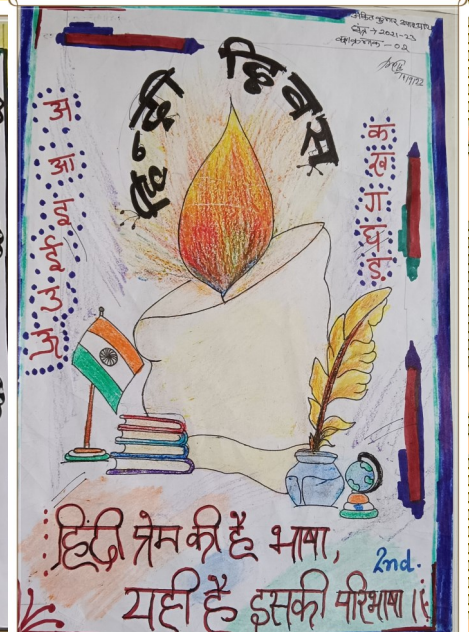 सत्र → 2021-23
हिन्दी दिवस
अ
आ
इ
ई
उ
ऊ
क
ख
ग
घ
ड़
हिंदी प्रेम की है भाषा,
2nd.
यही है इसकी परिभाषा ।।